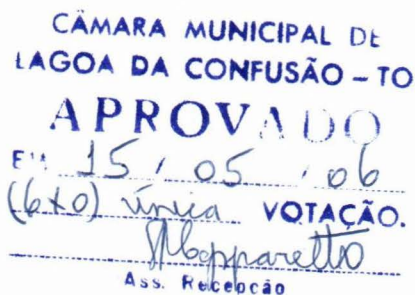 CÂMARA MUNICIPAL DE
LAGOA DA CONFUSÃO – TO
APROVADO
EM 15 / 05 / 06
(6x0) única VOTAÇÃO.
Ass. Recepção